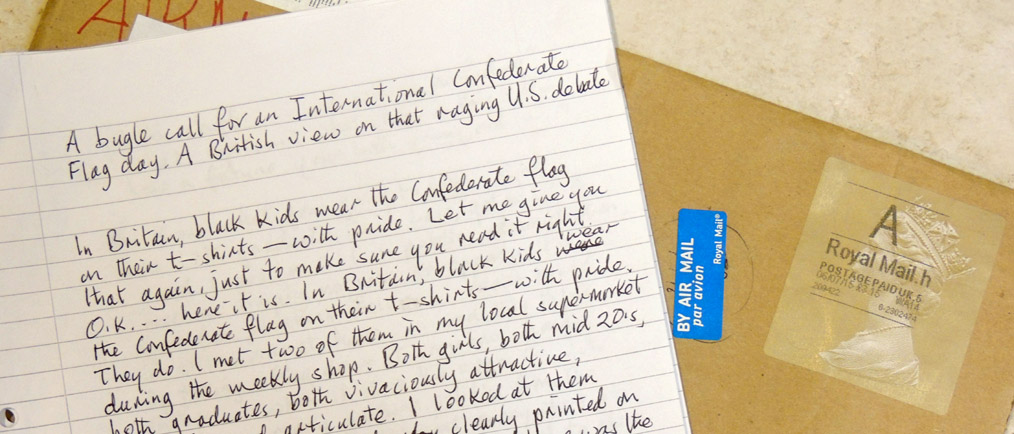 A bugle call for an International Confederate
Flag day. A British view on that raging U.S. debate
In Britain, black kids wear the Confederate flag
on their t-shirts — with pride. Let me give you
that again, just to make sure you read it right.
O.K.... here it is. In Britain, black kids wear
the Confederate flag on their t-shirts — with pride.
They do. I met two of them in my local supermarket
during the weekly shop. Both girls, both mid 20's,
both graduates, both vivaciously attractive,
articulate. I looked at them
clearly printed on
was the
BY AIR MAIL
par avion
Royal Mail®
A
Royal Mail.h
POSTAGE PAID UK